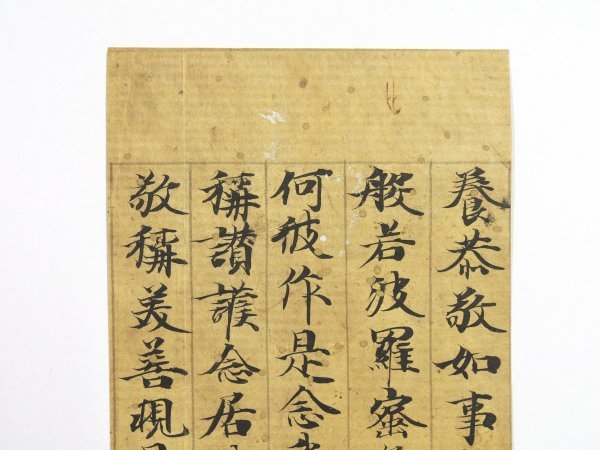 養恭敬如事
般若波羅蜜
何彼作是念
稱讃護念居
敬稱美善現